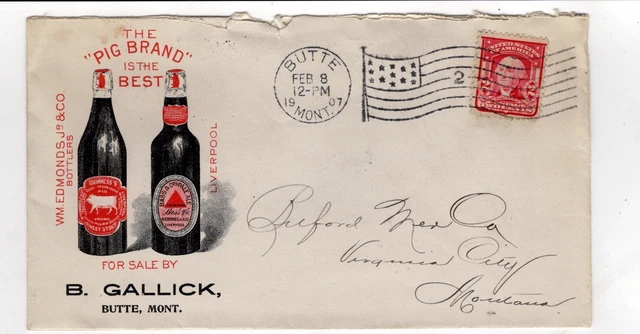 THE
"PIG BRAND"
IS THE
BEST
WM. EDMONDS JR & CO.
BOTTLERS
LIVERPOOL
GUINNESS'S
PIG
BRAND
BASS & CO'S PALE ALE
FOR SALE BY
B. GALLICK,
BUTTE, MONT.
BUTTE
FEB 8
12-PM
1907
MONT.
2
UNITED STATES
OF AMERICA
2 2
TWO CENTS
Buford Mer Co
Virginia City
Montana